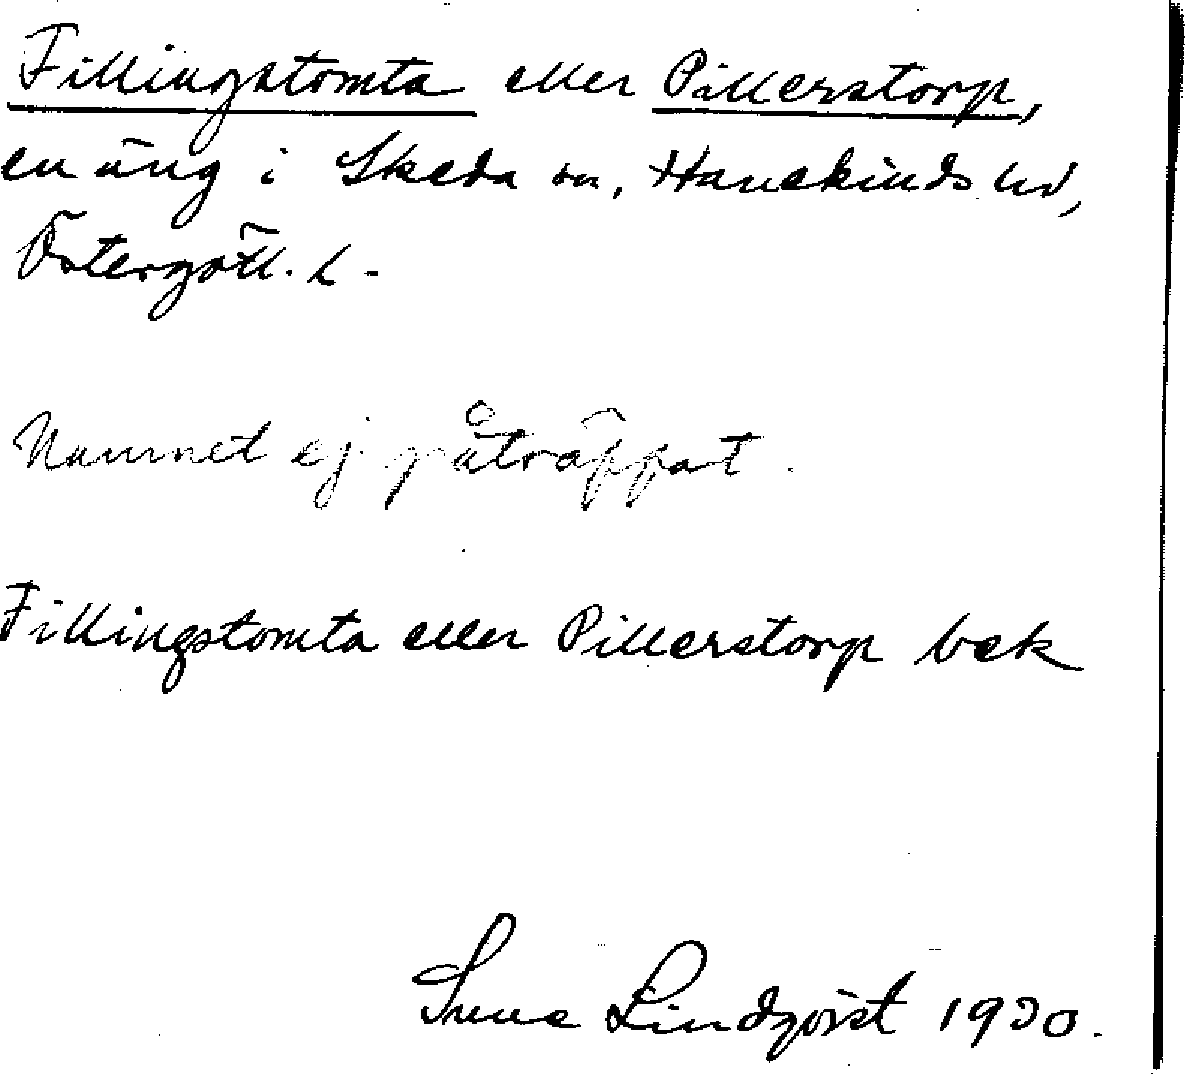 Fillingstomta eller Pillerstorp,
en äng i Skeda sn, Hanekinds hd,
Östergötl. l.
Namnet ej påträffat.
Fillingstomta eller Pillerstorp bæk
Sune Lindqvist 1930.